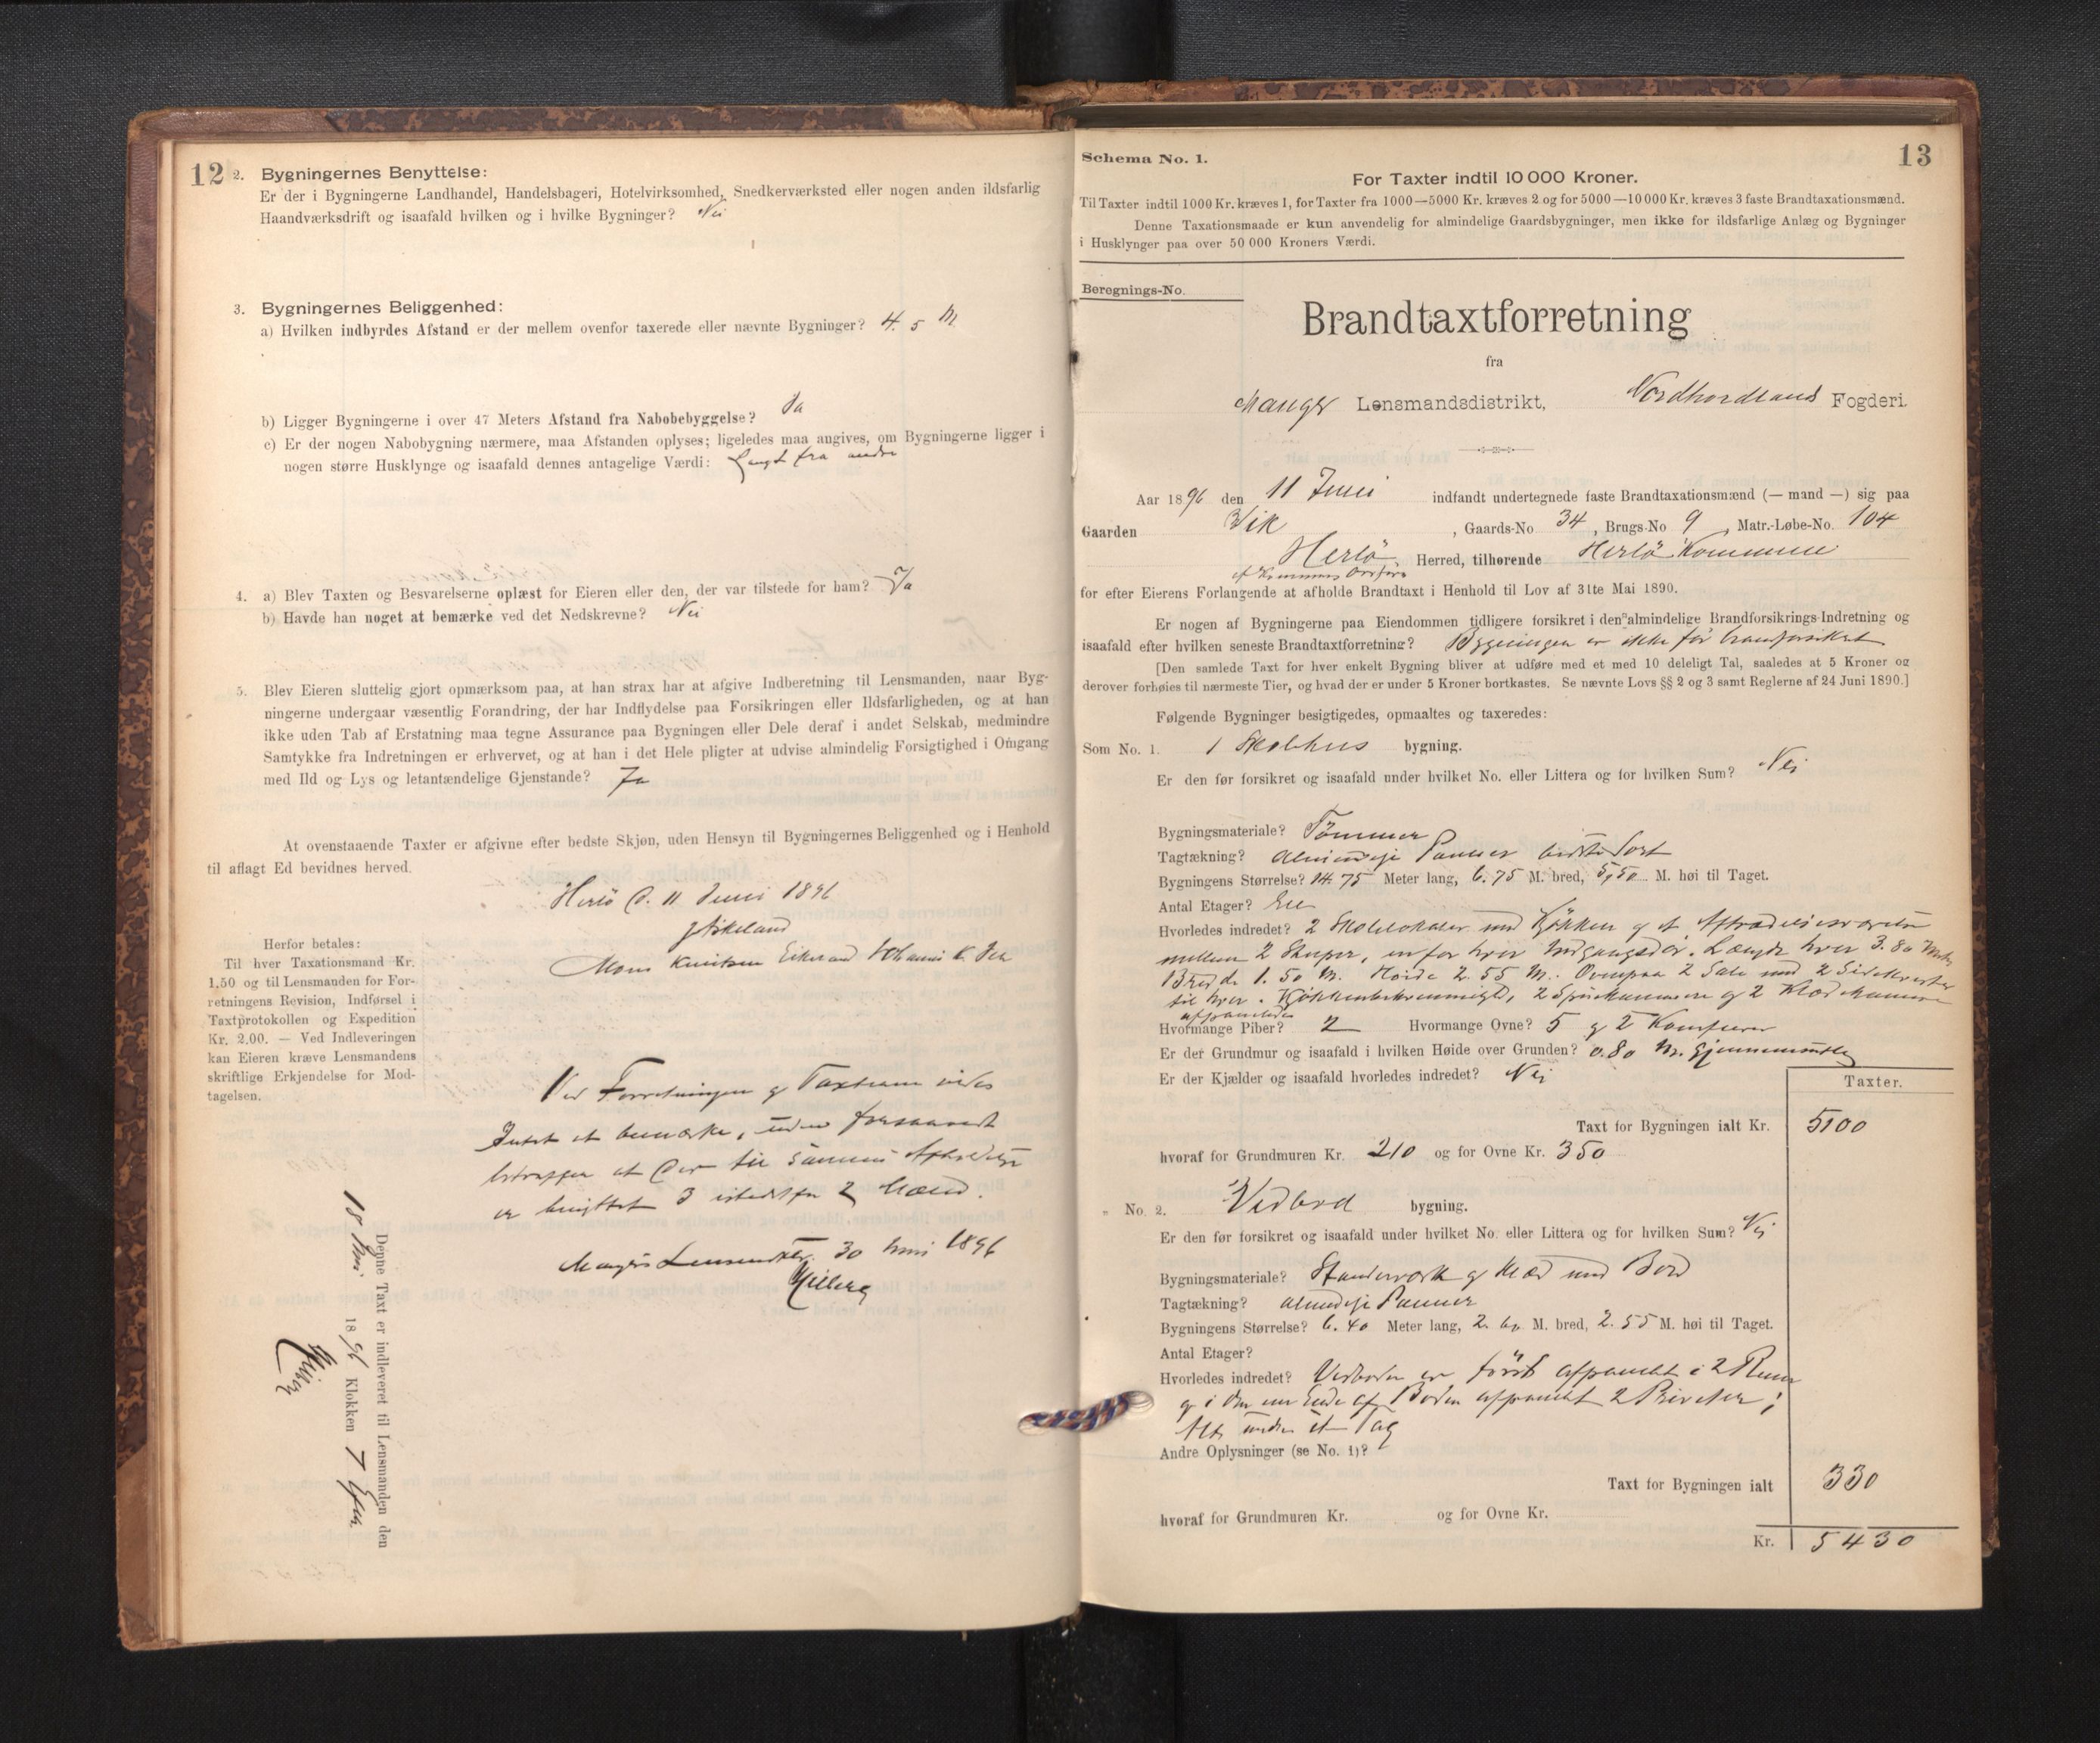 12
2. Bygningernes Benyttelse:
Er der i Bygningerne Landhandel, Handelsbageri, Hotelvirksomhed, Snedkerværksted eller nogen anden ildsfarlig
Haandværksdrift og isaafald hvilken og i hvilke Bygninger? Nei
3. Bygningernes Beliggenhed:
a) Hvilken indbyrdes Afstand er der mellem ovenfor taxerede eller nævnte Bygninger? 4.5 M
b) Ligger Bygningerne i over 47 Meters Afstand fra Nabobebyggelse? Ja
c) Er der nogen Nabobygning nærmere, maa Afstanden oplyses; ligeledes maa angives, om Bygningerne ligger i
nogen større Husklynge og isaafald dennes antagelige Værdi: Langt fra andre
4. a) Blev Taxten og Besvarelserne oplæst for Eieren eller den, der var tilstede for ham? Ja
b) Havde han noget at bemærke ved det Nedskrevne? Nei
5. Blev Eieren sluttelig gjort opmærksom paa, at han strax har at afgive Indberetning til Lensmanden, naar Byg-
ningerne undergaar væsentlig Forandring, der har Indflydelse paa Forsikringen eller Ildsfarligheden, og at han
ikke uden Tab af Erstatning maa tegne Assurance paa Bygningen eller Dele deraf i andet Selskab, medmindre
Samtykke fra Indretningen er erhvervet, og at han i det Hele pligter at udvise almindelig Forsigtighed i Omgang
med Ild og Lys og letantændelige Gjenstande? Ja
At ovenstaaende Taxter er afgivne efter bedste Skjøn, uden Hensyn til Bygningernes Beliggenhed og i Henhold
til aflagt Ed bevidnes herved.
Herlö d. 11 Juni 1896
Mons Knutsen
Herfor betales:
Til hver Taxationsmand Kr.
1,50 og til Lensmanden for For-
retningens Revision, Indførsel i
Taxtprotokollen og Expedition
Kr. 2,00. — Ved Indleveringen
kan Eieren kræve Lensmandens
skriftlige Erkjendelse for Mod-
tagelsen.
Ved Forretningen og Taxterne vides
Intet at bemærke, uden forsaavidt
betræffer at der til samme
er benyttet 3 istedetfor 2 Mænd.
30 Juni 1896
Denne Taxt er indleveret til Lensmanden den
18 Juni 1896 Klokken 7
Schema No. 1.
13
For Taxter indtil 10 000 Kroner.
Til Taxter indtil 1000 Kr. kræves 1, for Taxter fra 1000—5000 Kr. kræves 2 og for 5000—10 000 Kr. kræves 3 faste Brandtaxationsmænd.
Denne Taxationsmaade er kun anvendelig for almindelige Gaardsbygninger, men ikke for ildsfarlige Anlæg og Bygninger
i Husklynger paa over 50 000 Kroners Værdi.
Beregnings-No.
Brandtaxtforretning
fra
Manger Lensmandsdistrikt, Nordhordlands Fogderi.
Aar 1896 den 11 Juni indfandt undertegnede faste Brandtaxationsmænd (— mand —) sig paa
Gaarden Vik, Gaards-No 34, Brugs-No 9, Matr.-Løbe-No. 104
Herlö Herred, tilhørende Herlö Kommune
af Kommunens Ordfører
for efter Eierens Forlangende at afholde Brandtaxt i Henhold til Lov af 31te Mai 1890.
Er nogen af Bygningerne paa Eiendommen tidligere forsikret i den almindelige Brandforsikrings-Indretning og
isaafald efter hvilken seneste Brandtaxtforretning? Bygningen er ikke før branforsikret
[Den samlede Taxt for hver enkelt Bygning bliver at udføre med et med 10 deleligt Tal, saaledes at 5 Kroner og
derover forhøies til nærmeste Tier, og hvad der er under 5 Kroner bortkastes. Se nævnte Lovs §§ 2 og 3 samt Reglerne af 24 Juni 1890.]
Følgende Bygninger besigtigedes, opmaaltes og taxeredes:
Som No. 1. 1 Skolehus bygning.
Er den før forsikret og isaafald under hvilket No. eller Littera og for hvilken Sum? Nei
Bygningsmateriale? Tömmer
Tagtækning? Almindelige Panner bedste Sort
Bygningens Størrelse? 14.75 Meter lang, 6.75 M. bred, 5,50 M. høi til Taget.
Antal Etager? En
Hvorledes indredet? 2 Skolelokaler med Kjökken og et Aftrædelsesværelse
mellem 2 Skuper, enfor hver Indgangsdør. Længde hver 3.80 Meter
Bredde 1.50 M. Høide 2.55 M. Ovenpaa 2 Sale med 2 Sidekvister
til hver. 2 Spiskammere og 2 Klædekammere
afpanelede
Hvormange Piber? 2 Hvormange Ovne? 5 og 2 Komfurer
Er der Grundmur og isaafald i hvilken Høide over Grunden? 0.80 M. Gjennemsnitlig
Er der Kjælder og isaafald hvorledes indredet? Nei
Taxter.
Taxt for Bygningen ialt Kr. 5100
hvoraf for Grundmuren Kr. 210 og for Ovne Kr. 350
„ No. 2. Vedbod bygning.
Er den før forsikret og isaafald under hvilket No. eller Littera og for hvilken Sum? Nei
Bygningsmateriale? Standerværk og Klæd med Bord
Tagtækning? almindelige Panner
Bygningens Størrelse? 6.40 Meter lang, 2.60 M. bred, 2.55 M. høi til Taget.
Antal Etager?
Hvorledes indredet? Vedboden er först afpanelet i 2 Rum
og i den ene Ende af Boden afpanelet 2 Priveter;
Alt under et Tag
Andre Oplysninger (se No. 1)?
Taxt for Bygningen ialt 330
hvoraf for Grundmuren Kr. og for Ovne Kr.
Kr. 5430